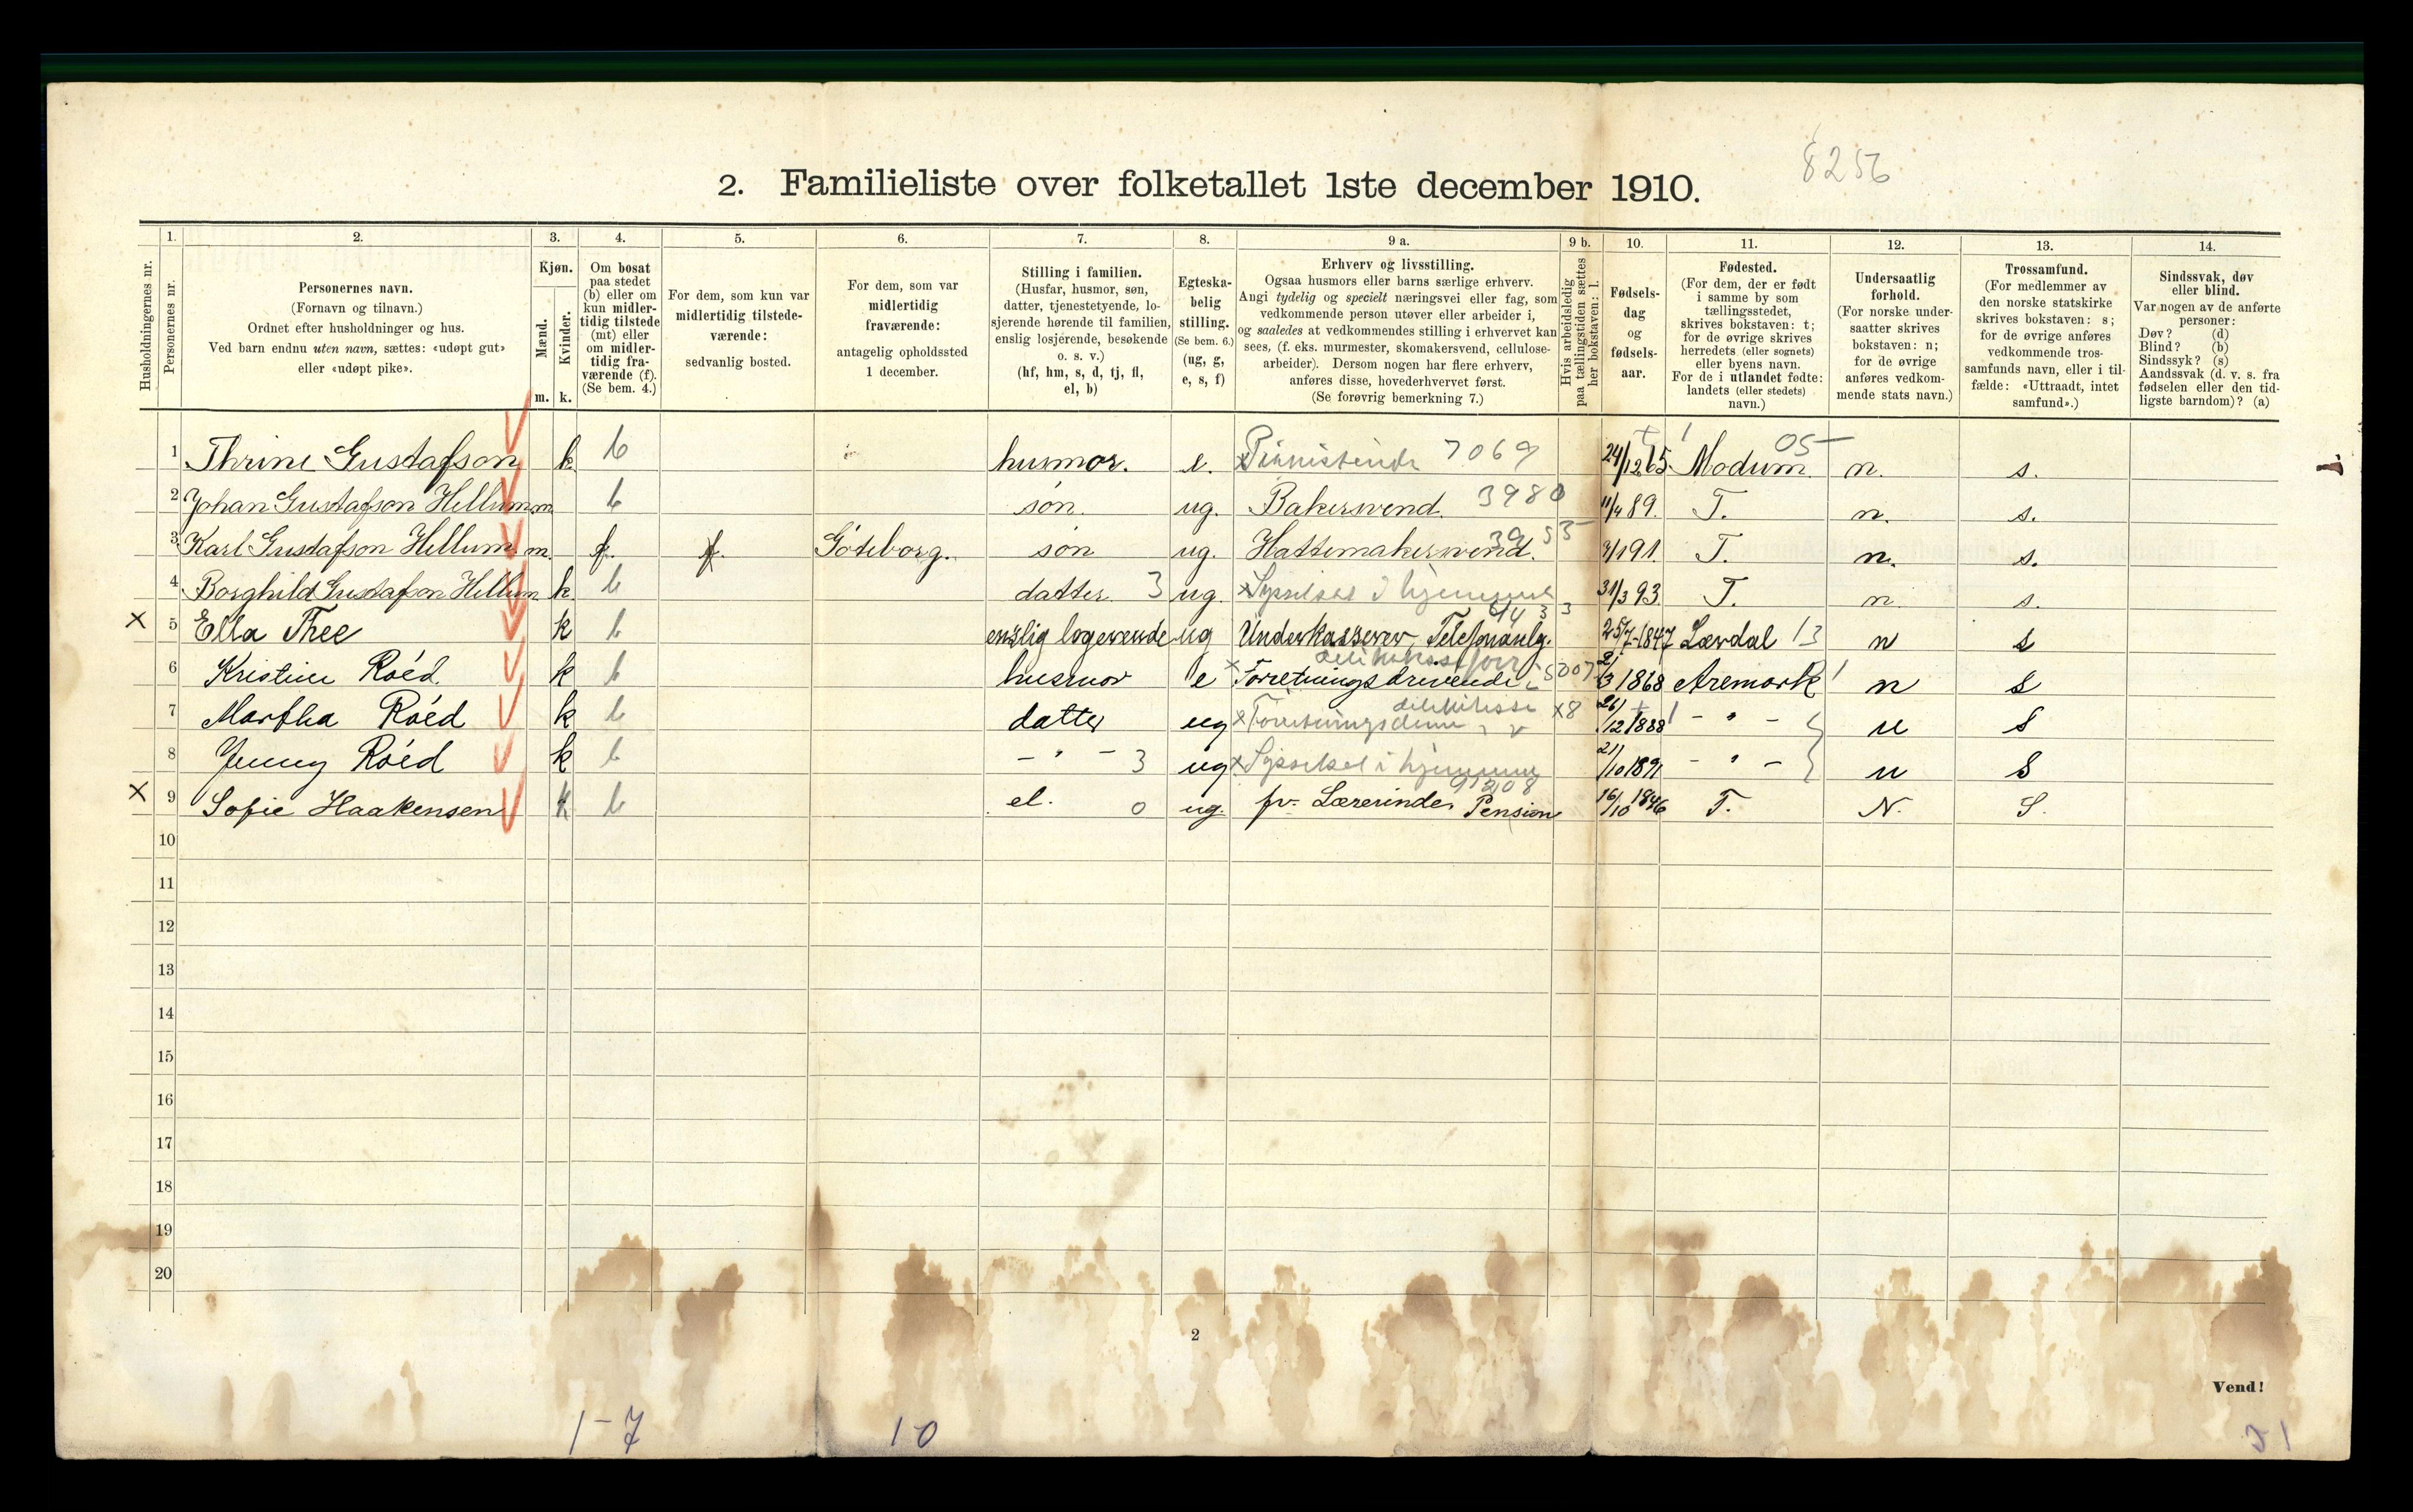 8256
2. Familieliste over folketallet 1ste december 1910.
Husholdningernes nr.
1. Personernes nr.
2. Personernes navn. (Fornavn og tilnavn.) Ordnet efter husholdninger og hus. Ved barn endnu uten navn, sættes: «udøpt gut» eller «udøpt pike».
3. Kjøn. Mænd. m. Kvinder. k.
4. Om bosat paa stedet (b) eller om kun midlertidig tilstede (mt) eller om midlertidig fraværende (f). (Se bem. 4.)
5. For dem, som kun var midlertidig tilstedeværende: sedvanlig bosted.
6. For dem, som var midlertidig fraværende: antagelig opholdssted 1 december.
7. Stilling i familien. (Husfar, husmor, søn, datter, tjenestetyende, losjerende hørende til familien, enslig losjerende, besøkende o. s. v.) (hf, hm, s, d, tj, fl, el, b)
8. Egteskabelig stilling. (Se bem. 6.) (ug, g, e, s, f)
9 a. Erhverv og livsstilling. Ogsaa husmors eller barns særlige erhverv. Angi tydelig og specielt næringsvei eller fag, som vedkommende person utøver eller arbeider i, og saaledes at vedkommendes stilling i erhvervet kan sees, (f. eks. murmester, skomakersvend, cellulosearbeider). Dersom nogen har flere erhverv, anføres disse, hovederhvervet først. (Se forøvrig bemerkning 7.)
9 b. Hvis arbeidsledig paa tællingstiden sættes her bokstaven: l.
10. Fødselsdag og fødselsaar.
11. Fødested. (For dem, der er født i samme by som tællingsstedet, skrives bokstaven: t; for de øvrige skrives herredets (eller sognets) eller byens navn. For de i utlandet fødte: landets (eller stedets) navn.)
12. Undersaatlig forhold. (For norske undersaatter skrives bokstaven: n; for de øvrige anføres vedkommende stats navn.)
13. Trossamfund. (For medlemmer av den norske statskirke skrives bokstaven: s; for de øvrige anføres vedkommende trossamfunds navn, eller i tilfælde: «Uttraadt, intet samfund».)
14. Sindssvak, døv eller blind. Var nogen av de anførte personer: Døv? (d) Blind? (b) Sindssyk? (s) Aandssvak (d. v. s. fra fødselen eller den tidligste barndom)? (a)
1 Thrine Gustafson k b husmor. e. 7069 24/12 65 Modum 05 n. s.
2 Johan Gustafson Hellum m b søn. ug. Bakersvend. 3980 11/4 89. T. n. s.
3 Karl Gustafson Hellum m. f. f. Göteborg. søn ug. Hattemakersvend. 3955 9/1 91. T. n. s.
4 Borghild Gustafson Hellum k b datter 3 ug. x Sysselsat i hjemmet 31/3 93. T. n. s.
x 5 Ella Thee k b enslig logerende ug Underkasserer Telefonanlg. 25/7-1847 Lærdal 13 n s
6 Kristine Röed k b husmor e x Forretningsdrivende 2/3 1868 Aremark n s
7 Martha Röed k b datter ug x Forretningsdame delikatesse x8 26/12 1888 - " - n s
8 Jenny Röed k b - " - 3 ug x Sysselsat i hjemmet 21/10 1891 - " - n s
x 9 Sofie Haakensen k b el. 0 ug. fv. Lærerinde, Pension 16/10 1846 T. N. S.
10
11
12
13
14
15
16
17
18
19
20
2
Vend!
1-7 10 21